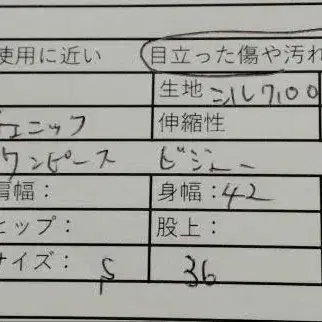 使用に近い 目立った傷や汚れ
生地 シルク100
チェニック 伸縮性
ワンピース ビジュー
肩幅： 身幅：42
ヒップ： 股上：
サイズ： S 36